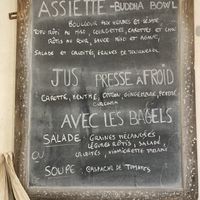 ASSIETTE - BUDDHA BOWL
BOULGOUR AUX HERBES ET SÉSAME
TOFU RÔTI AU MISO, COURGETTES, CAROTTES ET CHOU
RÔTIS AU FOUR, SAUCE MISO ET AGAVE,
SALADE ET CRUDITÉS, GRAINES DE TOURNESOL
JUS PRESSÉ À FROID
CAROTTE, MENTHE, CITRON, GINGEMBRE, PERSIL
CURCUMA
AVEC LES BAGELS
SALADE : GRAINES MÉLANGÉES,
LÉGUMES RÔTIS, SALADE,
CRUDITÉS, VINAIGRETTE
OU
SOUPE : GASPACHO DE TOMATES